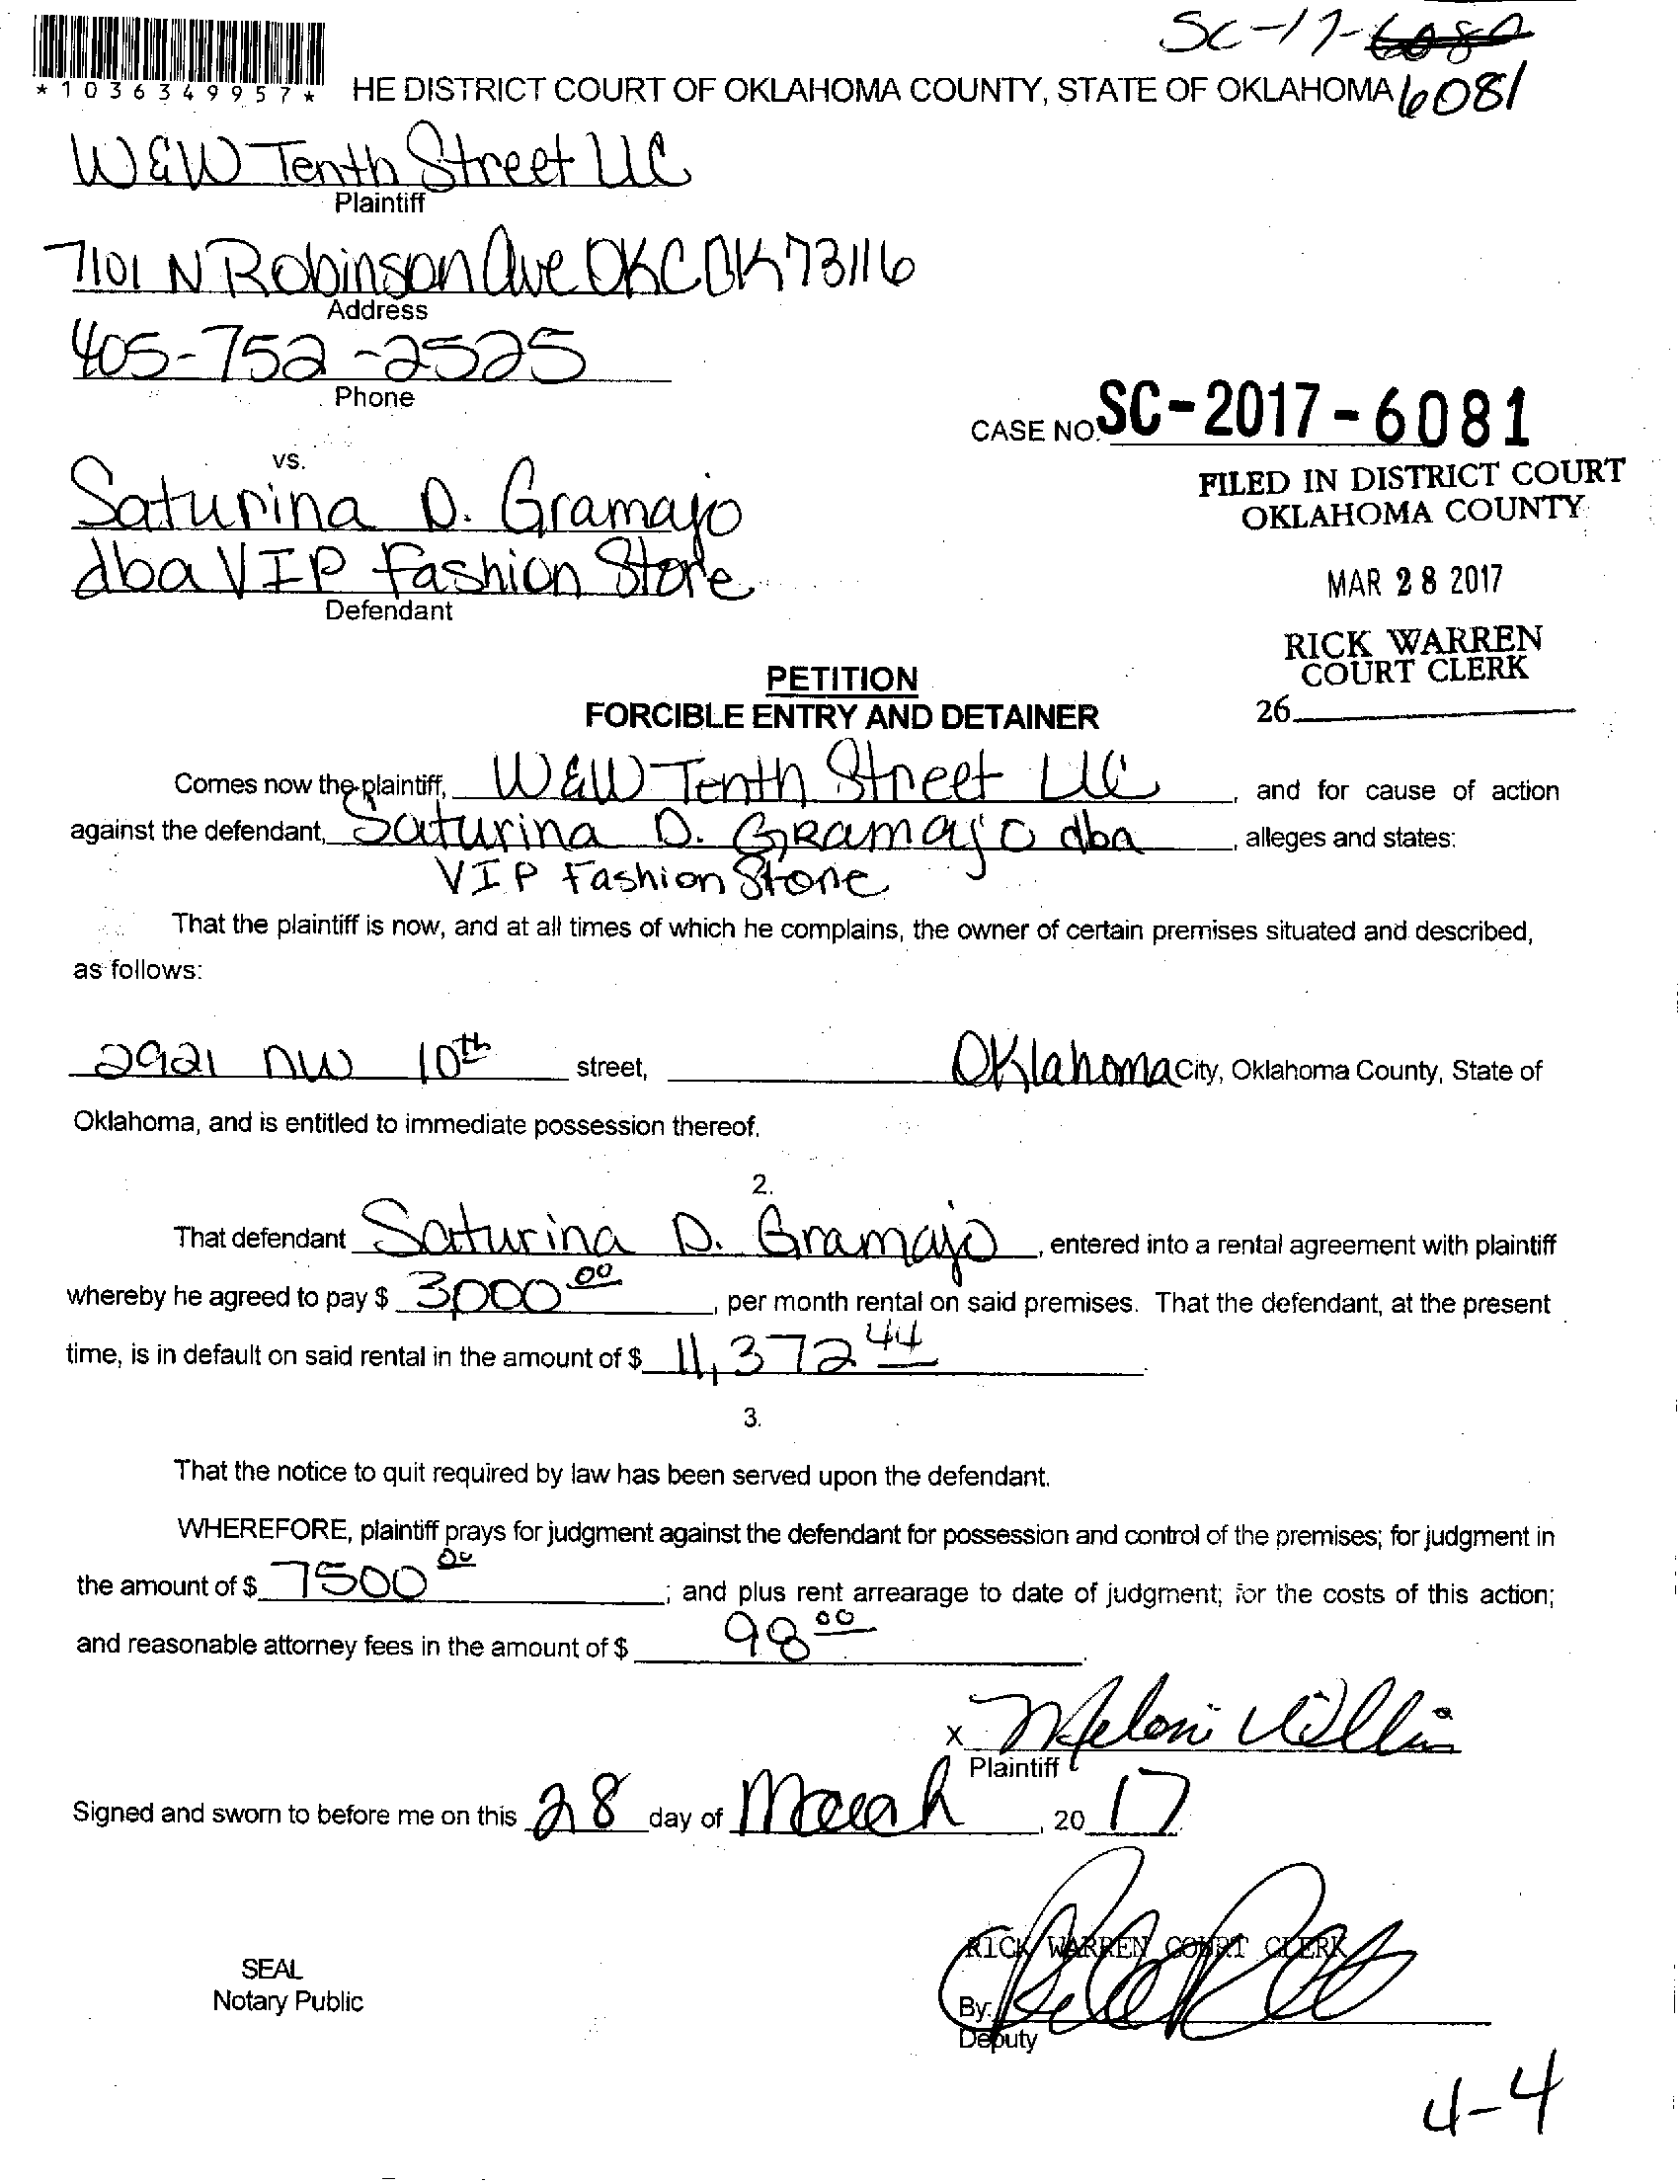 SC-17-6080
*1036349957*
HE DISTRICT COURT OF OKLAHOMA COUNTY, STATE OF OKLAHOMA 6081
W&W Tenth Street LLC
Plaintiff
7101 N Robinson Ave OKC OK 73116
Address
405-752-2525
Phone
CASE NO. SC-2017-6081
vs.
FILED IN DISTRICT COURT
OKLAHOMA COUNTY
Saturina D. Gramajo
dba VIP Fashion Store
Defendant
MAR 28 2017
RICK WARREN
COURT CLERK
26
PETITION
FORCIBLE ENTRY AND DETAINER
Comes now the plaintiff, W&W Tenth Street LLC, and for cause of action
against the defendant, Saturina D. Gramajo dba, alleges and states:
VIP Fashion Store
That the plaintiff is now, and at all times of which he complains, the owner of certain premises situated and described,
as follows:
2921 NW 10th street, Oklahoma City, Oklahoma County, State of
Oklahoma, and is entitled to immediate possession thereof.
2.
That defendant Saturina D. Gramajo, entered into a rental agreement with plaintiff
whereby he agreed to pay $ 3,000 00, per month rental on said premises. That the defendant, at the present
time, is in default on said rental in the amount of $ 11,372 44.
3.
That the notice to quit required by law has been served upon the defendant.
WHEREFORE, plaintiff prays for judgment against the defendant for possession and control of the premises; for judgment in
the amount of $ 7500 00; and plus rent arrearage to date of judgment; for the costs of this action;
and reasonable attorney fees in the amount of $ 98 00.
x Meloni Willis
Plaintiff
Signed and sworn to before me on this 28 day of March, 2017
RICK WARREN COURT CLERK
SEAL
Notary Public
By:
Deputy
4-4